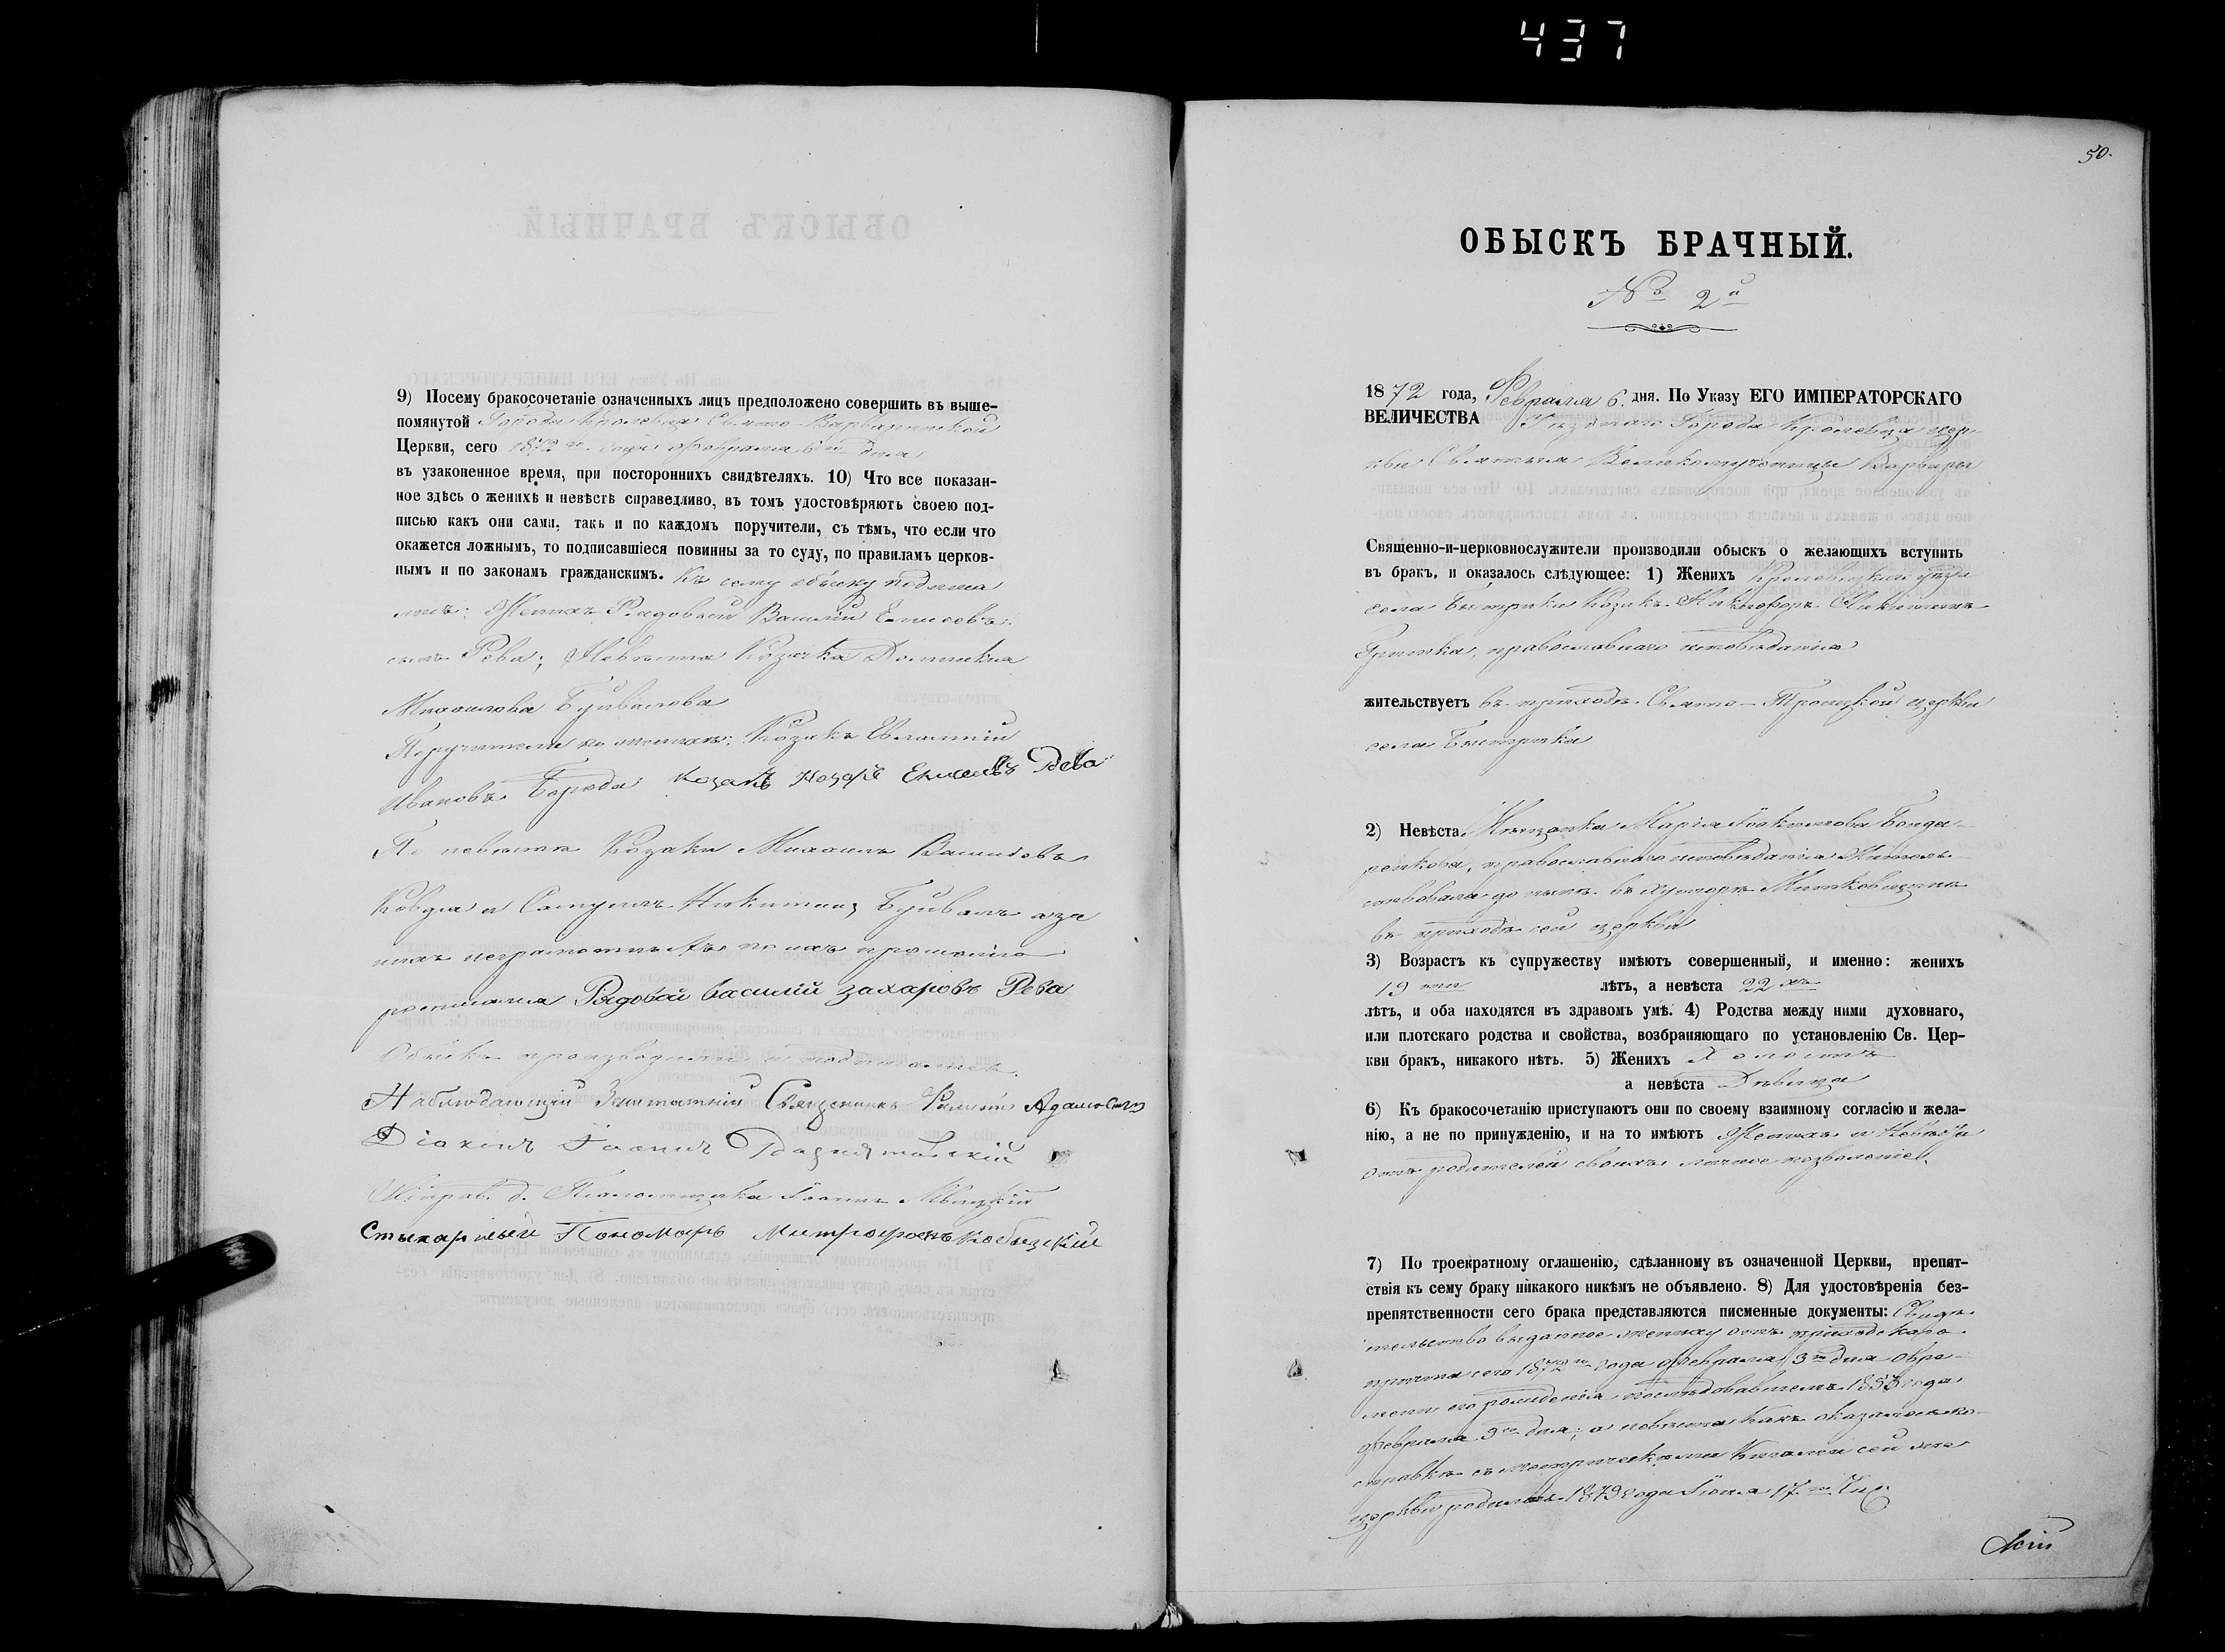 437
9) Посему бракосочетаніе означенныхъ лицъ предположено совершить въ выше-
помянутой Города Кролевца Свято-Варваринской
Церкви, сего 1872 го года Февраля 6 го дня
въ узаконенное время, при постороннихъ свидѣтеляхъ. 10) Что все показан-
ное здѣсь о женихѣ и невѣстѣ справедливо, въ томъ удостовѣряютъ своею под-
писью какъ они сами, такъ и по каждомъ поручители, съ тѣмъ, что если что
окажется ложнымъ, то подписавшіеся повинны за то суду, по правиламъ церков-
нымъ и по законамъ гражданскимъ. Къ сему обыску подписа
лись: Женихъ Рядовый Василій Елисеевъ
сынъ Рева; Невѣста Козачка Домникия
Михаилова Бувалова
Поручители по женихѣ: Козакъ
Ивановъ Борода Козакъ Назаръ Елисеевъ Рева
По невѣстѣ Козаки Михаилъ
Ковдя и Самуилъ Никитинъ Бувалъ а за
нихъ неграмотныхъ по ихъ прошенію
росписался Рядовой Василій Захаровъ Рева
Обыскъ производили и подписались
Наблюдающій Заштатный Священникъ Адамовичъ
Діаконъ Іоаннъ
д. Псаломщика Іоаннъ
Стихарный Пономарь Митрофанъ Кобызскій
50.
ОБЫСКЪ БРАЧНЫЙ.
№ 2й
1872 года, Февраля 6. дня. По Указу ЕГО ИМПЕРАТОРСКАГО
ВЕЛИЧЕСТВА Уѣзднаго Города Кролевца цер-
кви Святыя Великомученицы Варвары
Священно-и-церковнослужители производили обыскъ о желающихъ вступить
въ бракъ, и оказалось слѣдующее: 1) Женихъ Кролевецкаго уѣзда
села Быстрика Козакъ Никифоръ Никитинъ
православнаго исповѣданія
жительствуетъ въ приходѣ Свято-Троицкой церкви
села Быстрика
2) Невѣста Мѣщанка Марія Іоакимова Бонда-
ренкова, православнаго исповѣданія Житель-
ствовала до нынѣ въ хуторѣ
въ приходѣ сей церкви
3) Возрастъ къ супружеству имѣютъ совершенный, и именно: женихъ
19 ти лѣтъ, а невѣста 22 хъ
лѣтъ, и оба находятся въ здравомъ умѣ. 4) Родства между ними духовнаго,
или плотскаго родства и свойства, возбраняющаго по установленію Св. Цер-
кви бракъ, никакого нѣтъ. 5) Женихъ Холостъ
а невѣста Дѣвица
6) Къ бракосочетанію приступаютъ они по своему взаимному согласію и жела-
нію, а не по принужденію, и на то имѣютъ Женихъ и Невѣста
отъ родителей своихъ личное позволеніе.
7) По троекратному оглашенію, сдѣланному въ означенной Церкви, препят-
ствія къ сему браку никакого никѣмъ не объявлено. 8) Для удостовѣренія без-
препятственности сего брака представляются писменные документы: Свидѣ-
тельство выданное жениху отъ приходскаго
причта сего 1872 го года Февраля 3 го дня о вре-
мени его рожденія послѣдовавшемъ 1853 года
Февраля 9 го дня; а невѣста какъ оказалось по
справкѣ съ метрическими Книгами сей же
церкви родилась 1849 года Іюля 17 го Чис